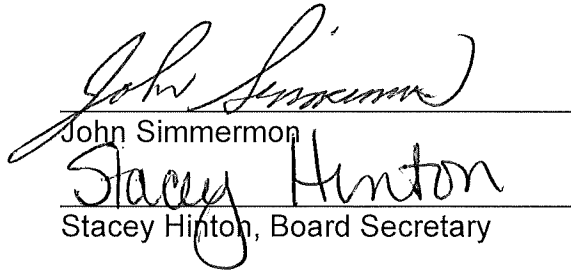 John Simmermon
John Simmermon
Stacey Hinton
Stacey Hinton, Board Secretary